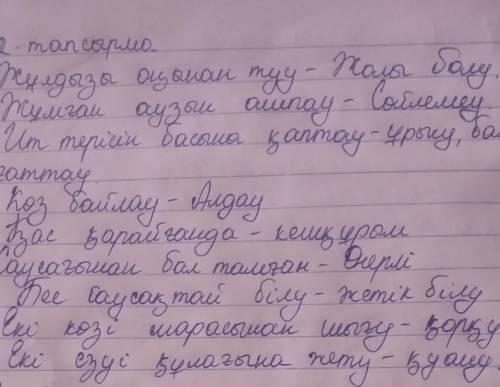 2 тапсырма
Жұлдызы оңынан туу - Жолы болу.
Жұмған аузын ашпау - Сөйлемеу
Ит терісін басына қаптау - ұрысу, бал
ғаттау
Көз байлау - Алдау
Қас қарайғанда - кешқұрым
Саусағынан бал тамған - Өнерлі
Бес саусақтай білу - жетік білу
Екі көзі шарасынан шығу - қорқу
Екі езуі құлағына жету - қуану.